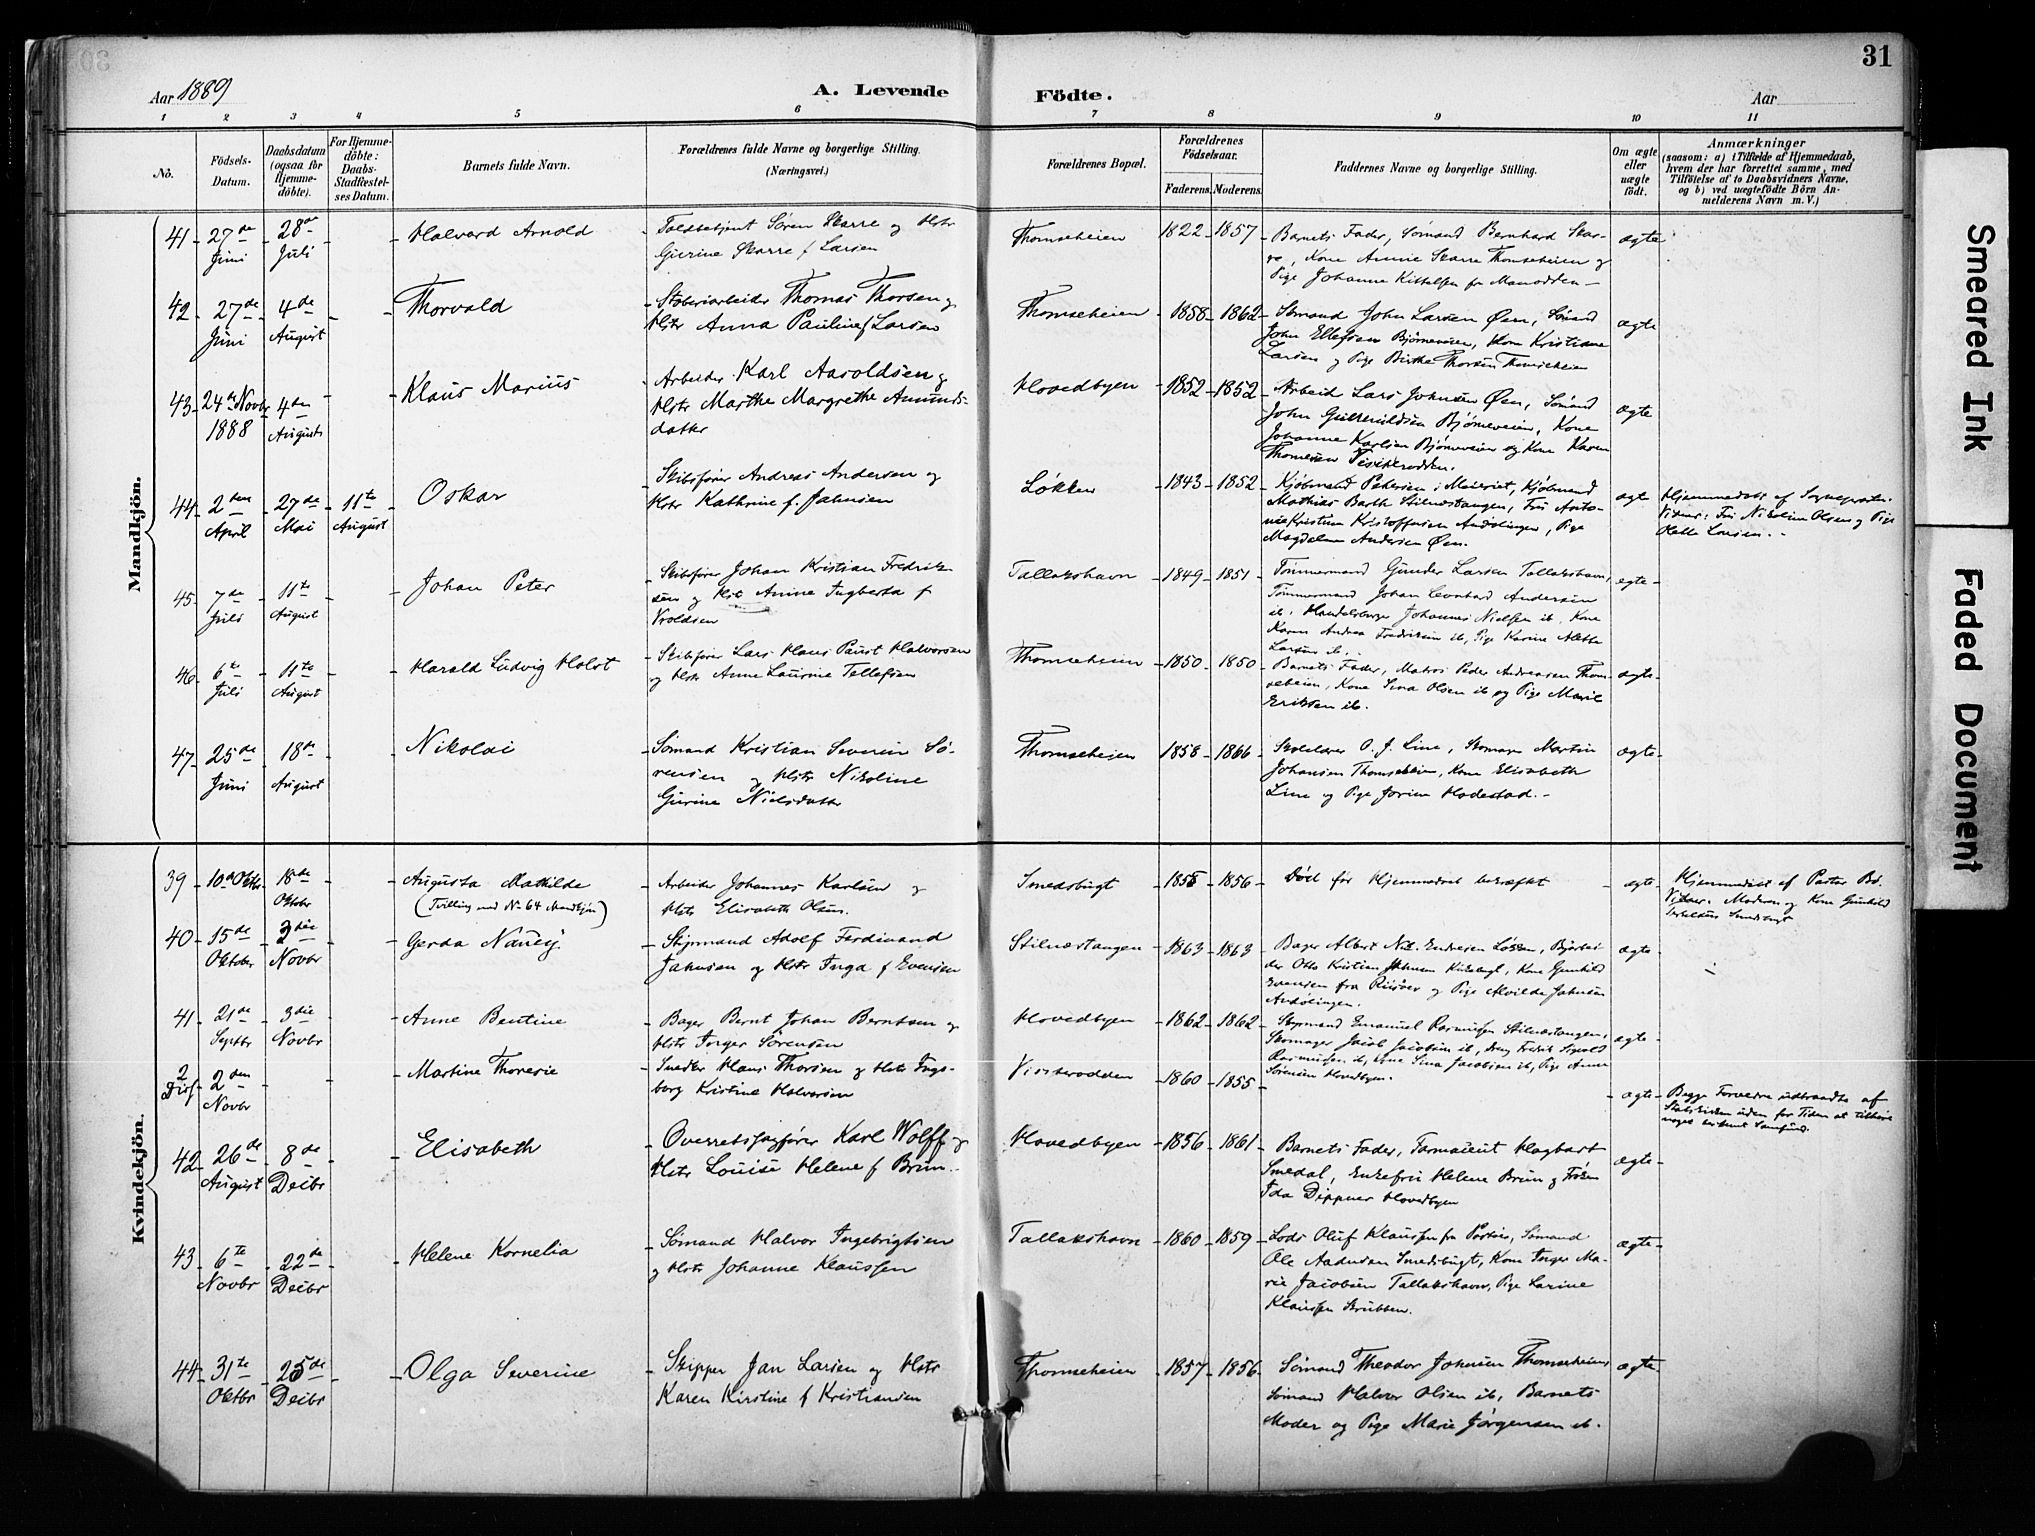 31
Aar 1889
A. Levende Födte.
Aar
1 2 3 4 5 6 7 8 9 10 11
No.
Födsels-Datum.
Daabsdatum (ogsaa for Hjemme-döbte).
For Hjemme-döbte: Daabs-Stadfestel-ses Datum.
Barnets fulde Navn.
Forældrenes fulde Navne og borgerlige Stilling.
(Næringsvei.)
Forældrenes Bopæl.
Forældrenes Födselsaar.
Faderens. Moderens.
Faddernes Navne og borgerlige Stilling.
Om ægte eller uægte födt.
Anmærkninger
(saasom: a) i Tilfælde af Hjemmedaab,
hvem der har forrettet samme, med
Tilföielse af to Daabsvidners Navne,
og b) ved uegtefödte Börn An-
melderens Navn m. V.)
Mandkjön.
41 27de Juni 28de Juli Halvard Arnold
Søren Skarre og Hstr
Gurine Skarre f Larsen
Thomseheien 1822 1857
Barnets Fader, Sømand Bernhard Skar-
re, Kone Annie Skarre Thomseheien og
Pige Johanne Kittelsen fr
ægte
42 27de Juni 4de August Thorvald
Thomas Thorsen og
Hstr Anna Pauline f Larsen
Thomseheien 1858 1862
Sømand John Larsen Øen, Sømand
John Ellefsen Bjørneveien, Kone Kristiane
Larsen og Pige Thorsen Thomseheien
ægte
43 24de Novbr 1888 4de August Klaus Marius
Arbeider Karl Aaroldsen og
Hstr Marthe Margrethe Amunds-
datter
Hovedbyen 1852 1852
Arbeid Lars Johnsen Øen, Sømand
John Bjørneveien, Kone
Johanne Karlsen Bjørneveien og Kone Karen
Thomesen
ægte
44 2den April 27de Mai 11te August Oskar
Skibsfører Andreas Andersen og
Hstr Kathrine f. Jahnsen
Løkken 1843 1852
Kjøbmand Petersen i Meieriet, Kjøbmand
Mathias Barth Stilnæstangen, Fru Anto-
Kristoffersen Andølingen, Pige
Magdalene Andersen Øen.
ægte
Hjemmedøbt af Sognepræsten.
Vidner: Fru Nikoline Olsen og Pige
45 7de Juli 11te August Johan Peter
Skibsfører Johan Kristian Fredrik-
sen og Hst Anine Ingberta f
Vroldsen
Tallakshavn 1849 1851
Tømmermand Gunder Larsen Tallakshavn,
Tømmermand Johan Leonhard Andersen
ib. Johannes Nielsen ib. Kone
Karen Andrea Fredriksen ib, Pige Karine Aletta
Larsen ib.
ægte
46 6te Juli 11te August Harald Ludvig Holst
Skibsfører Lars Hans Paust Halvorsen
og Hstr Anne Laurine Tellefsen
Thomseheien 1850 1850
Barnets Fader, Matros Peder Andreasen Thom-
seheien, Kone Sina Olsen ib og Pige Marie
Eriksen ib.
ægte
47 25de Juni 18de August Nikolai
Sømand Kristian Severin Sø-
rensen og Hstr Nikoline
Gurine Nielsdatter
Thomseheien 1858 1866
Skolelærer O. J. Line, Skomager Martin
Johansen Thomseheien, Kone Elisabeth
Line og Pige Hodestad.
ægte
Kvindekjön.
39 10de Oktbr 18de Oktober Augusta Mathilde
(Tvilling med No 64 Mandkjøn)
Arbeider Johannes Karlsen og
Hstr Elisabeth Olsen.
Smedsbugt 1855 1856
Død før Hjemmedaab bekræftet
ægte
Hjemmedøbt af Pastor
Vidner: Moderen og Kone Gunhild
40 15de Oktober 3die Novbr Gerda Nancy
Styrmand Adolf Ferdinand
Jahnsen og Hstr Inga f Evensen
Stilnæstangen 1863 1863
Bager Albert Løkken,
Otto Kristian Johnsen Kirkebugt, Kone Gunhild
Evensen fra Risøer og Pige Alvilde Jahnsen
Andølingen.
ægte
41 21de Septbr 3die Novbr Anne Bentine
Bager Bernt Johan Berntsen og
Hstr Inger Sørensen
Hovedbyen 1862 1862
Styrmand Emanuel Rasmussen Stilnæstangen,
Skomager Jacob Jacobsen ib, Dreng Fredrik Sigvald
Rasmussen ib, Kone Sina Jacobsen ib, Pige Anne
Sørensen Hovedbyen.
ægte
2 Diss 2den Novbr Martine Thoresie
Snedker Hans Thorsen og Hstr Inge-
borg Kristine Halvorsen
Visterodden 1860 1855
ægte
Begge Forældre udtraadte af
Statskirken uden for Tiden at tilhøre
noget bestemt Samfund.
42 26de August 8de Decbr Elisabeth
Overretssagfører Karl Wolff og
Hstr Louise Helene f Brun
Hovedbyen 1856 1861
Barnets Fader, Farmaceut Hagbart
Smedal, Enkefru Helene Brun og Frøken
Ida Dippner Hovedbyen
ægte
43 6te Novbr 22de Decbr Helene Kornelia
Sømand Halvor Ingebrigtsen
og Hstr Johanne Klaussen
Tallakshavn 1860 1859
Lods Oluf Klaussen fra Portør, Sømand
Ole Aadnesen Smedsbugt, Kone Inger Ma-
rie Jacobsen Tallakshavn, Pige Larine
Klaussen Skrubben.
ægte
44 31te Oktbr 25de Decbr Olga Severine
Skipper Jan Larsen og Hstr
Karen Kirstine f Kristiansen
Thomseheien 1857 1856
Sømand Theodor Johnsen Thomseheien,
Sømand Halvor Olsen ib, Barnets
Moder og Pige Marie Jørgensen ib.
ægte
Smeared Ink
Faded Document